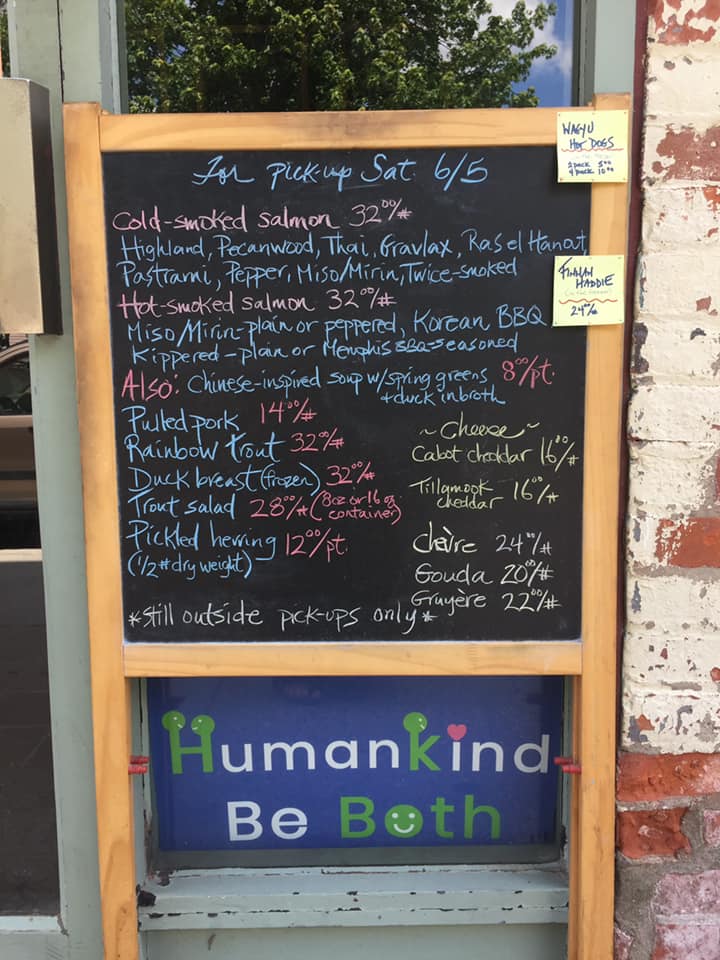 For pick-up Sat. 6/5
Cold-smoked salmon 32⁰⁰/#
Highland, Pecanwood, Thai, Gravlax, Ras el Hanout,
Pastrami, Pepper, Miso/Mirin, Twice-smoked
Hot-smoked salmon 32⁰⁰/#
Miso/Mirin-plain or peppered, Korean BBQ
Kippered-plain or Memphis BBQ-seasoned
Also: Chinese-inspired soup w/spring greens 8⁰⁰/pt.
+duck in broth
Pulled pork 14⁰⁰/#
Rainbow trout 32⁰⁰/#
Duck breast (frozen) 32⁰⁰/#
Trout salad 28⁰⁰/# (8oz or 16 oz
container)
Pickled herring 12⁰⁰/pt.
(1/2 # dry weight)
~Cheese~
Cabot cheddar 16⁰⁰/#
Tillamook 16⁰⁰/#
cheddar
Chèvre 24⁰⁰/#
Gouda 20⁰⁰/#
Gruyère 22⁰⁰/#
*Still outside pick-ups only*
WAGYU
HOT DOGS
2 PACK 5⁰⁰
4 PACK 10⁰⁰
FINNAN
HADDIE
24⁰⁰/#
HumanKind
Be Both